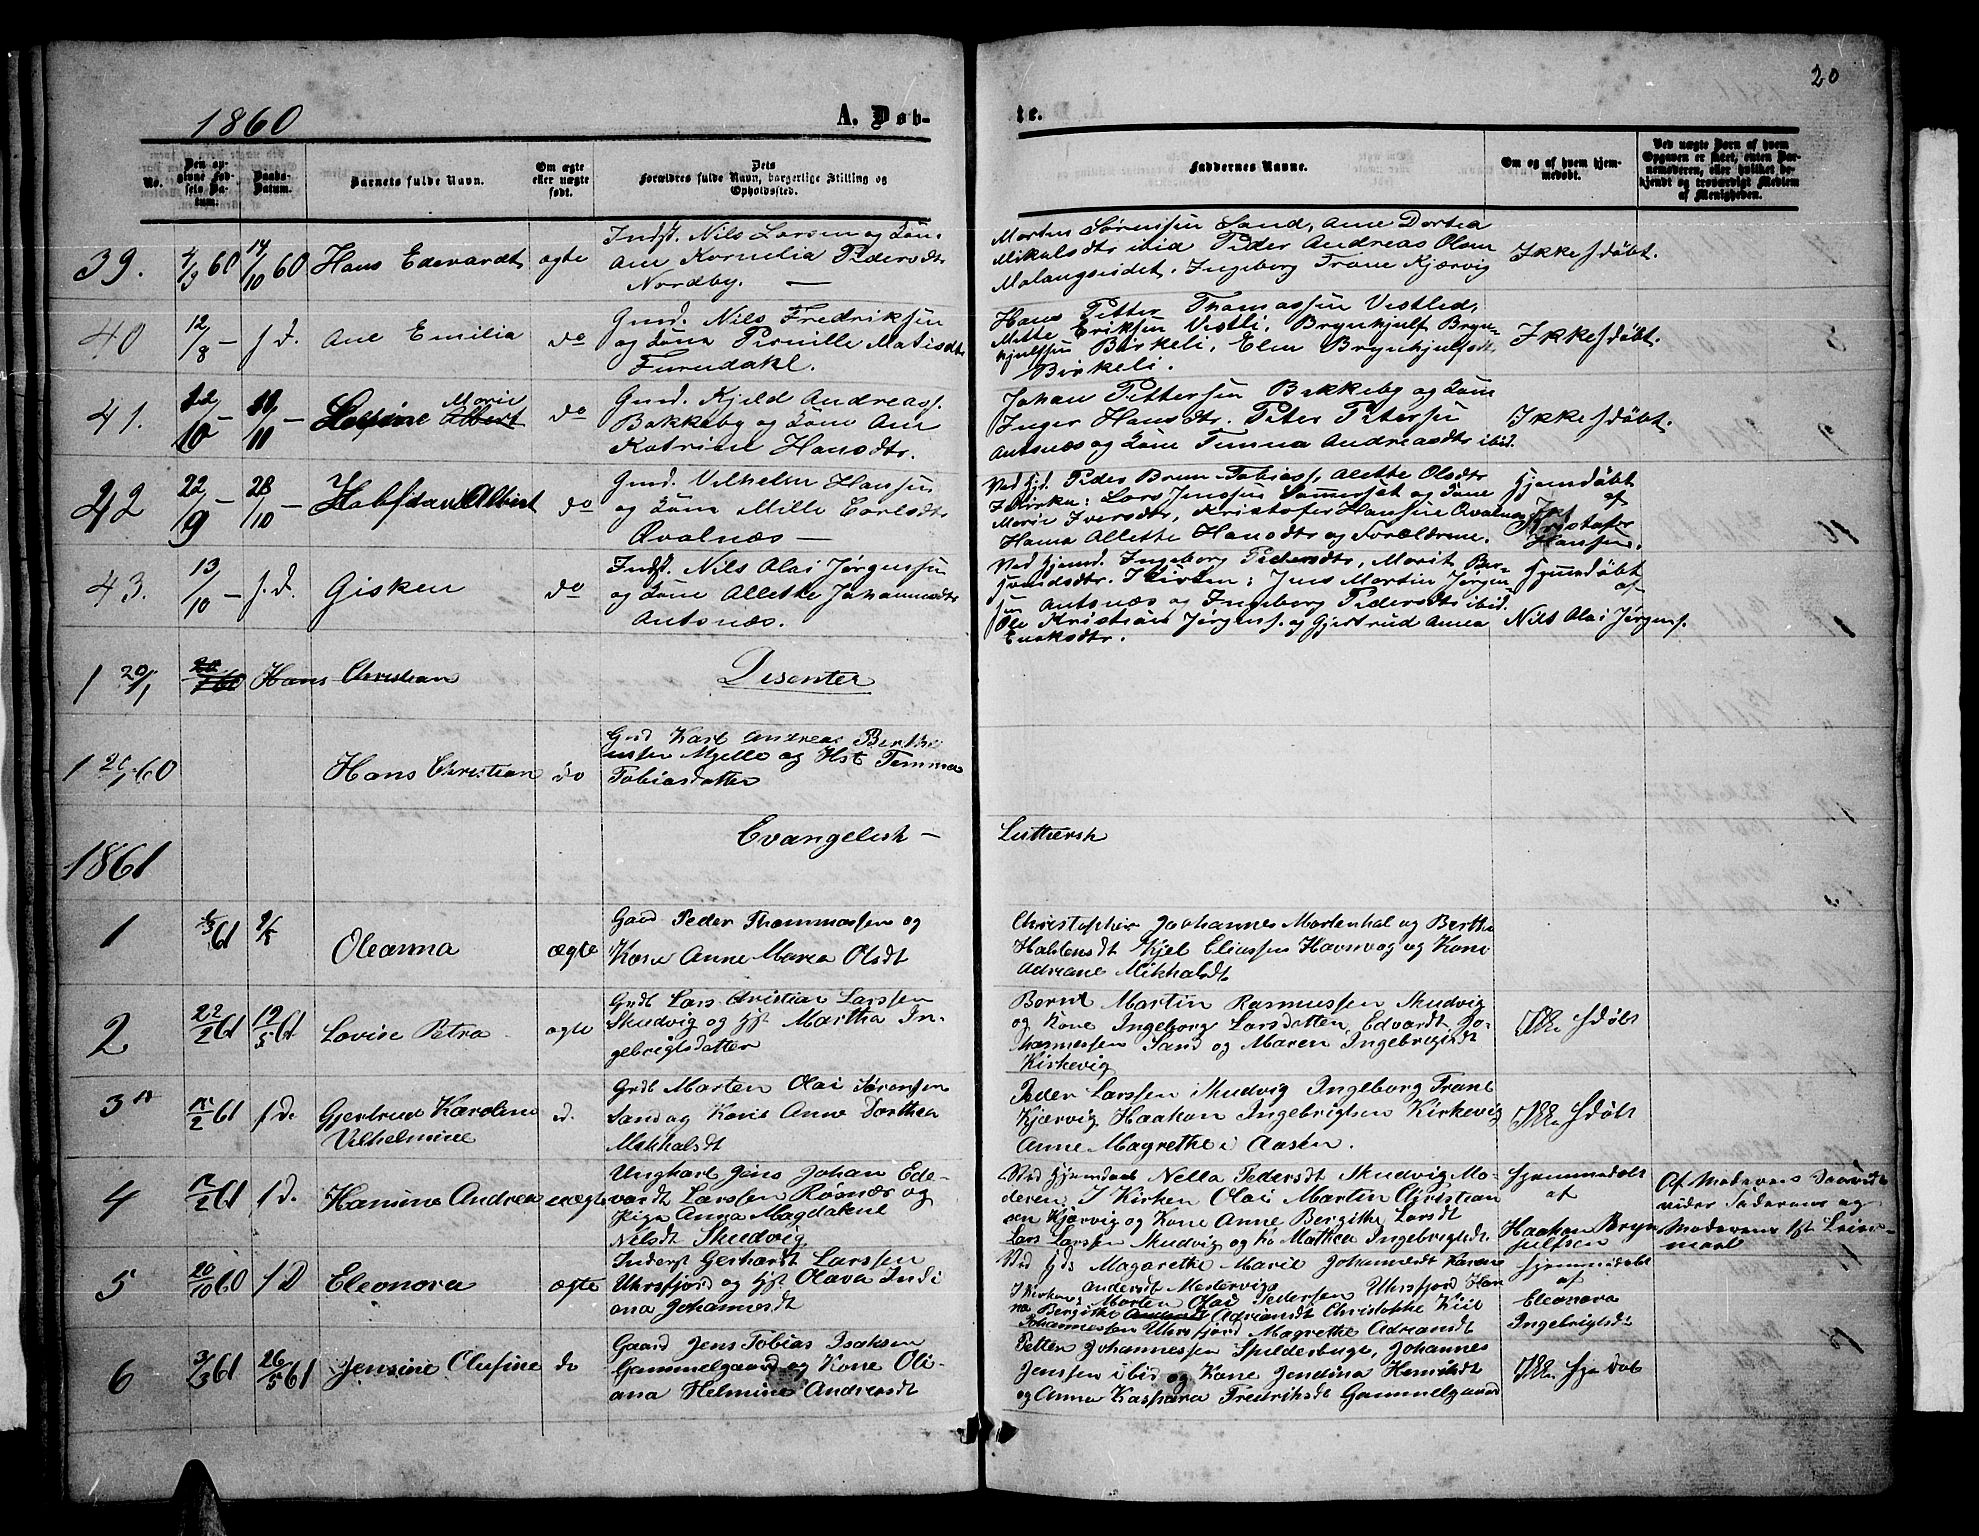 20
1860 A. Døb-
te.
No.
Den opgivne Fødsels Datum:
Daabs-Datum.
Barnets fulde Navn.
Om ægte eller uægte født.
Dets Forældres fulde Navn, borgerlige Stilling og Opholdssted.
Faddernes Navne.
Om og af hvem hjemmedøbt.
Ved uægte Børn af hvem Opgaven er skeet, enten Barnemoderen, eller hvilket bekjendt og troværdigt Medlem af Menigheden.
39. 4/9 60 14/10 60 Hans Edevardt ægte
Indst. Nils Larsen og Kone
Ane Kornelia Pedersdtr
Nordby. —
Morten Sørensen Sand, Ane Dortea
Mikalsdtr ibid Peder Andreas Olsen
Malangseidet. Ingeborg Trane Kjærvig
Ikke hjdøbt.
40 12/8 — s. d. Ane Emilia do
Gmd. Nils Fredriksen
og Kone Pernille Matisdtr
Furudahl.
Hans Petter Thomassen Vestlid,
Mette Eriksen Vestli, Brynhjulf Bryn-
hjulfsen Birkeli, Elen Brynhjulfsdt.
Birkeli.
Ikke hjdøbt.
41. 22/10 — 11 — Marie Albert do
Gmd. Kjeld Andreass.
Bakkeby og Kone Ane
Katrine Hansdtr.
Johan Pettersen Bakkeby og Kone
Inger Hansdtr. Peter Petersen
Antsnæs og Kone Temma Andreasdtr ibid.
Ikke hjdøbt.
42 22/9 — 28/10 — Halfdan Albert do
Gmd. Vilhelm Hansen
og Kone Mille Carlsdtr
Qvalnæs —
Ved Hjd. Peder Brun Tobiass, Alette Olsdtr
I Kirken: Lars Jenssen Sommerset og Kone
Marie Iversdtr, Kristofer Hansen Qvalnes
Hanna Allette Hansdtr og Forældrene.
Hjemdøbt
af
Kristofer
Hansen.
43. 13/10 — s. d. Gisken do
Indst. Nils Olai Jørgensen
og Kone Allette Johannesdtr
Antsnæs.
Ved Hjemd. Ingeborg Pedersdtr, Marit Ber-
Kirken: Jens Martin Jørgen
sen Antsnæs og Ingeborg Pedersdtr ibid.
Ole Kristian Jørgens. og Gjertrud Annea
Enoksdtr.
Hjemdøbt
af
Nils Olai Jørgens.
1 20/1 20/1 60 Hans Christian Disenter
1 20/1 60 Hans Christian do
Gmd Karl Andreas Berthe
ussen Mjelle og Hst Temma
Tobiasdatter
Evangelisk —
Luthersk
1861
1 /3 61 /5 Oleanna ægte
Gaard Peder Thommassen og
Kone Anne Marea Olsdt
Christopher Johannes Martenhal og Berthe
Haldensdt Kjel Eliassen Havnvag og Kone
Adriane Mikkalsdt
2 22/2 61 19/5 61 Lovise Petra ægte
Grdb Lars Christian Larssen
Skudvig og Hst Martha In-
gebrigtsdatter
Bernt Martin Rasmussen Skudvig
og Kone Ingeborg Larsdatter, Edvardt Jo-
hannessen Sand og Maren Ingebrigtsdt
Kirkevig
Ikke Hjdøbt
3 /2 61 s. D. Gjertrud Karoline
Vilhelmine d.
Grdb Marten Olai Sørensen
Sand og Kone Anne Dorthea
Mikkalsdt
Peder Larssen Skudvig Ingeborg Trane
Kjærvig Haakon Ingebrigtsen Kirkevig
Anne Magrethe i Aasen.
Ikke Hjdøbt
4 /2 61 s. D. Hansine Andrea uægte
Ungkarl Jens Johan Ede-
vardt Larssen Røsnæs og
Pige Anna Magdalene
Nilsdt Skudvig
Ved Hjemdaab Nella Pedersdt Skudvig Mo-
deren, I Kirken Olai Martin Christian
sen Kjærvig og Kone Anne Bergithe Larsdt
Lars Larssen Skudvig og Ko Mathea Ingebrigtsdt
Hjemmedøbt
af
Haakon Bryn
julfsen
Af Moderens
Faderens og
Moderens
5 20/10 60 s. D Eleonora ægte
Inderst Gerhardt Larssen
Uhrsfjord og Hst Olava Indi
ana Johannesdt
Ved Hjd Magarethe Marie Johannesdt Karen
Andersdt Mestervig
I Kirken Marten Olai Pedersen Uhrsfjord Han
na Bergithe Adriansdt Christophe Kiil
Johannessen Uhrsfjord Magrethe Adriansdt
Hjemmedøbt
af
Eleonora
Ingebrigtsdt
6 3/3 61 26/5 61 Jensine Olufine do
Gaard Jens Tobias Isaksen
Gammelgaard og Kone Oli-
ana Helmine Andreasdt
Petter Johannessen Spilderbuge, Johannes
Jenssen ibid og Kone Jendina Henrikdt
og Anna Kaspara Fredriksdt Gammelgaard
Ikke Hjedøb